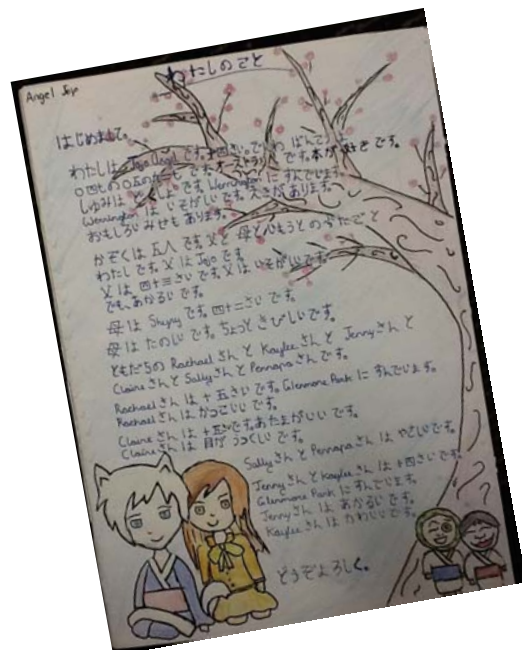 Angel Jojo
わたしのこと
はじめまして。
わたしは Jojo Angel です。十四さい です。本が好きです。
しゅみは どくしょ です。Werrington に すんでいます。
Werrington は いそがしい です。えきが あります。
おもしろい みせも あります。
かぞくは 五人 です。父と 母と いもうと と
わたし です。父は Jojo です。
父は 四十三さい です。父は いそがしい です。
でも、あかるい です。
母は です。四十二さい です。
母は たのしい です。ちょっと きびしい です。
ともだちの Rachael さんと Kaylee さんと Jennyさん と
Claire さんと Sally さんと Pennapa さん です。
Rachael さん は 十五さい です。Glenmore Park に すんでいます。
Rachael さん は かっこいい です。
Claire さん は 十五さい です。あたまが いい です。
Claire さん は 目が うつくしい です。
Sally さん と Pennapa さん は やさしい です。
Jenny さん と Kaylee さん は 十四さい です。
Glenmore Park に すんでいます。
Jenny さん は あかるい です。
Kaylee さん は かわいい です。
どうぞ よろしく。